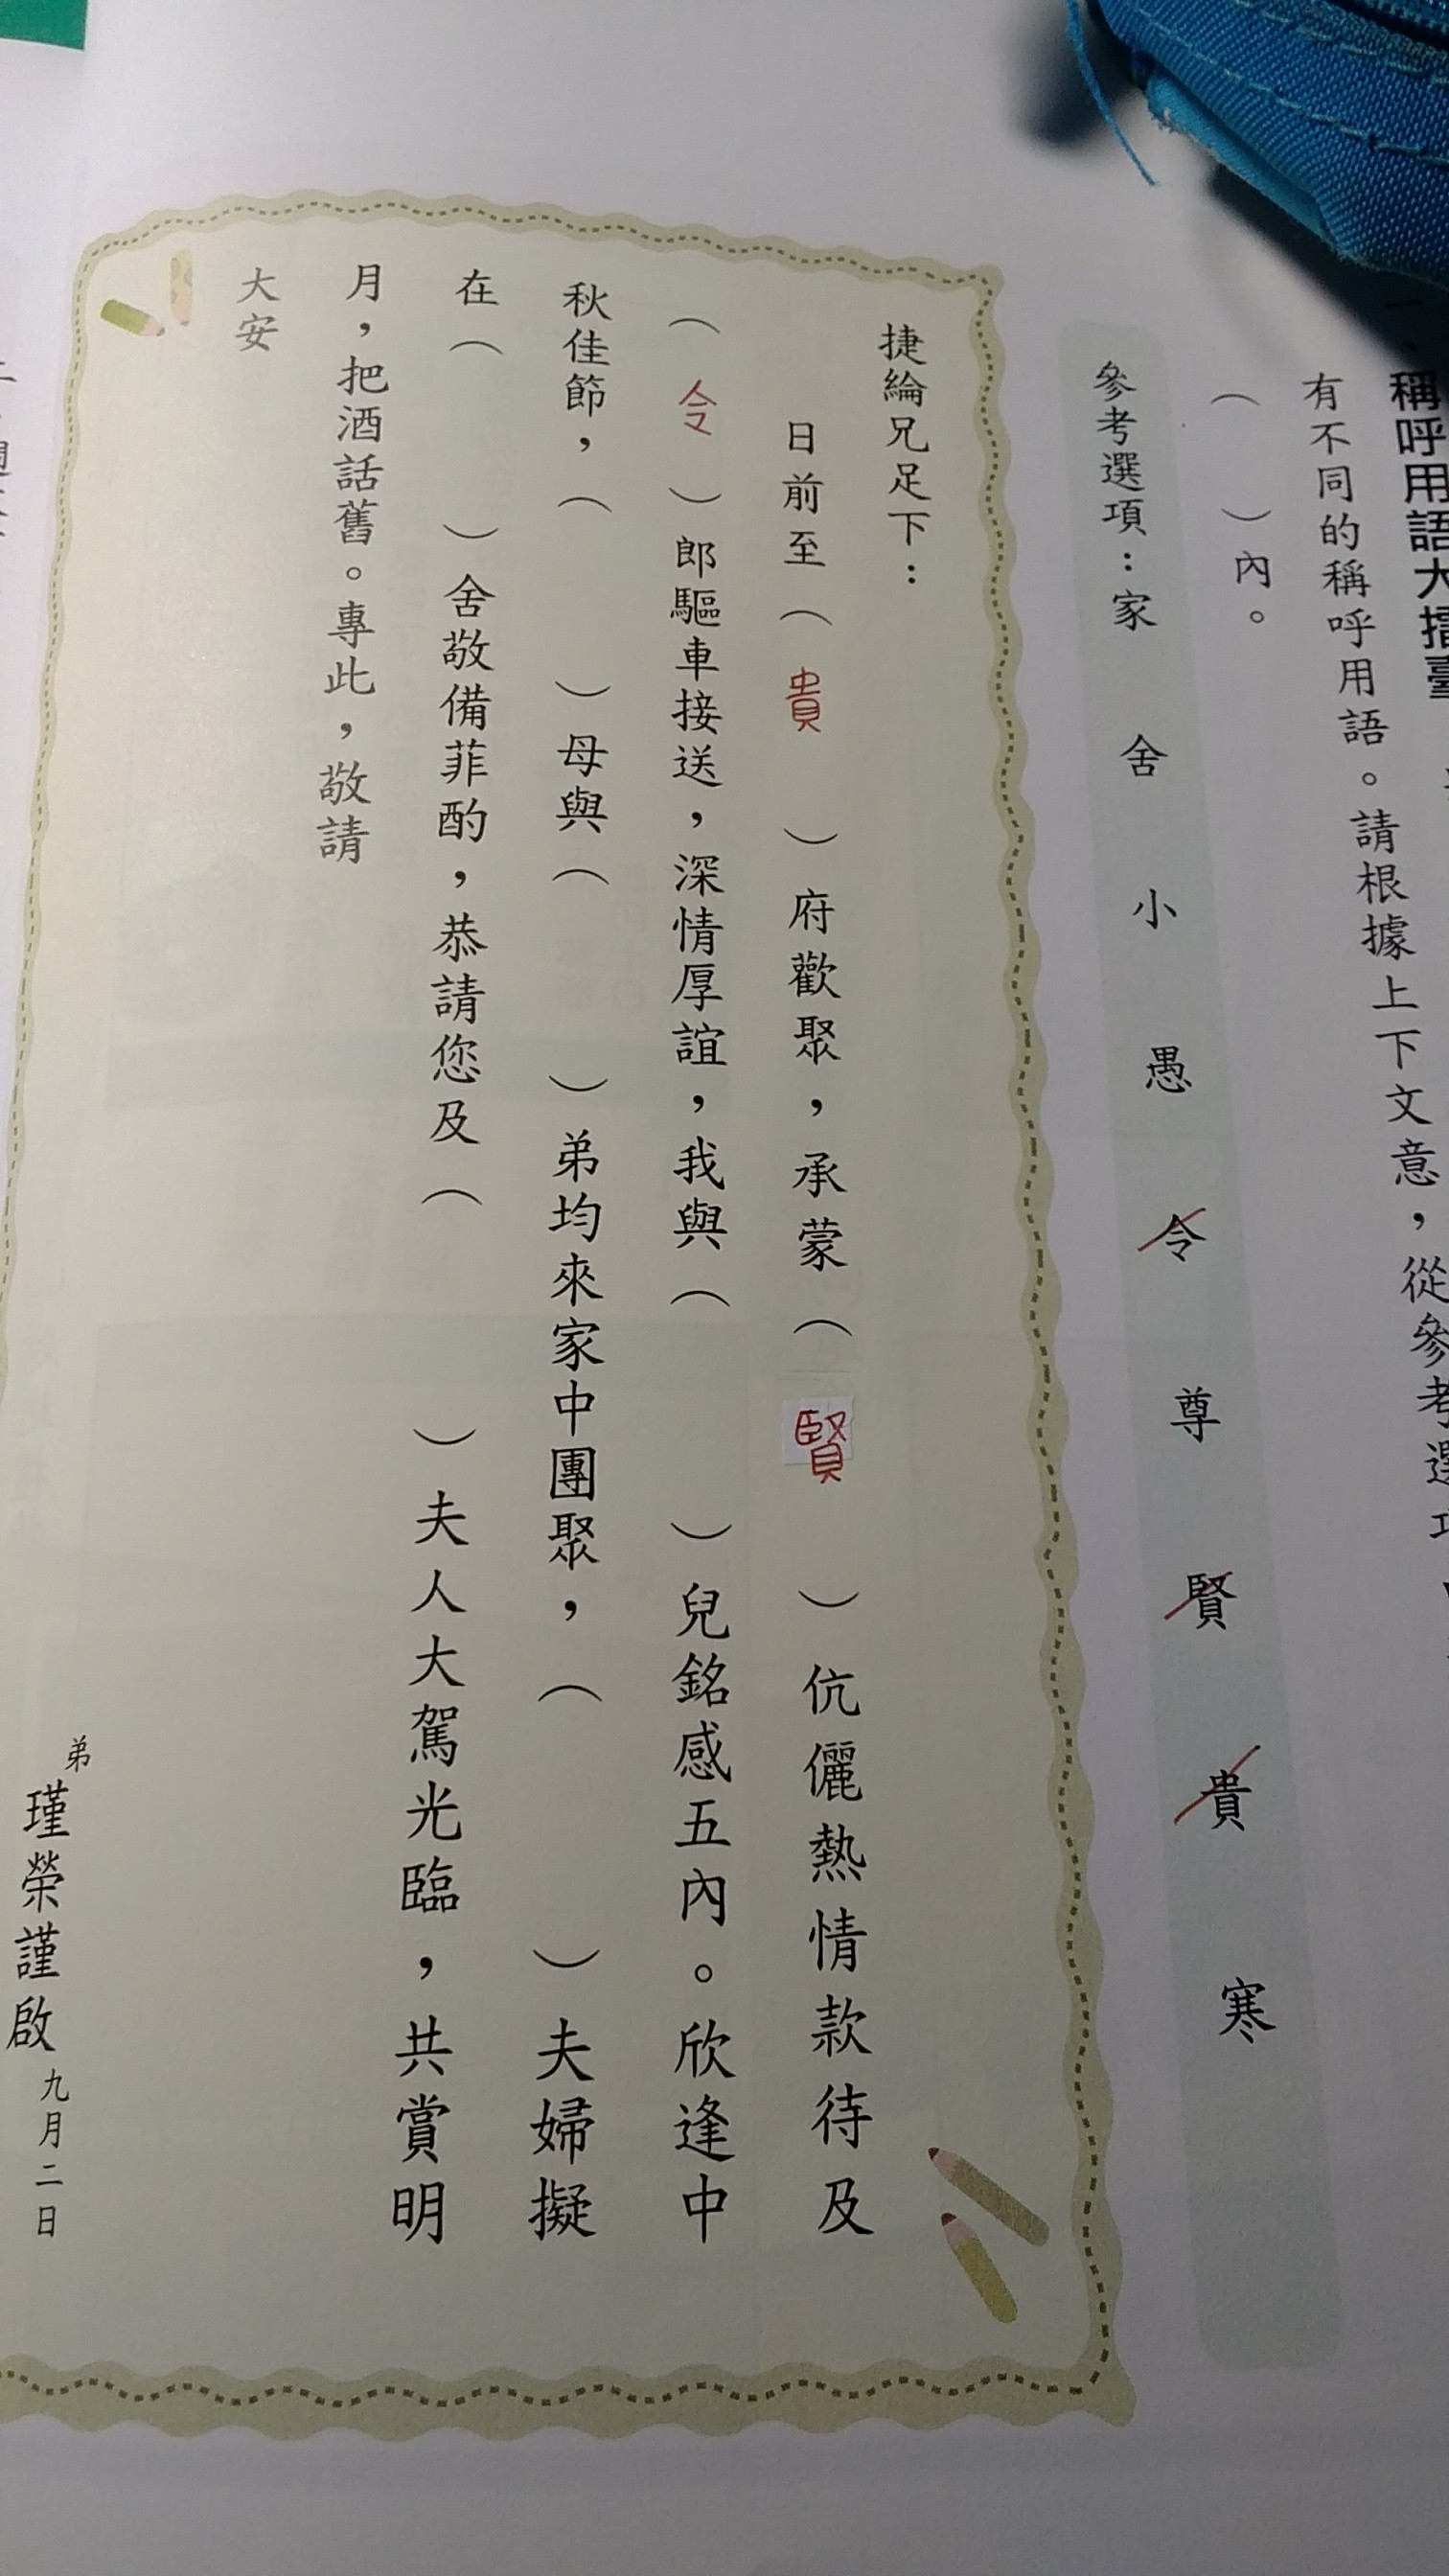 一、稱呼用語大擂臺
有不同的稱呼用語。請根據上下文意，從參考選項
（　）內。
參考選項：家　舍　小　愚　令　尊　賢　貴　寒
捷綸兄足下：
日前至（貴）府歡聚，承蒙（賢）伉儷熱情款待及
（令）郎驅車接送，深情厚誼，我與（　）兒銘感五內。欣逢中
秋佳節，（　）母與（　）弟均來家中團聚，（　）夫婦擬
在（　）舍敬備菲酌，恭請您及（　）夫人大駕光臨，共賞明
月，把酒話舊。專此，敬請
大安
弟瑾榮謹啟九月二日